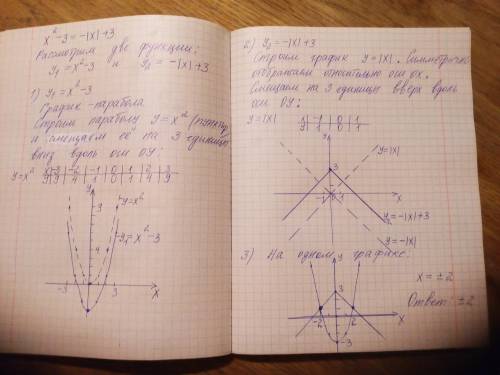 x²-3=-|x|+3
Рассмотрим две функции:
y₁=x²-3 и y₂=-|x|+3
1) y₁=x²-3
График - парабола
Строим параболу y=x² (пунктир)
и смещаем её на 3 единицы
вниз вдоль оси OY:
y=x²
x -3 -2 -1 0 1 2 3
y 9 4 1 0 1 4 9
y
9
y=x²
4
y₁=x²-3
-3 3 x
2) y₂=-|x|+3
Строим график y=|x|. Симметрично
отображаем относительно оси OX.
Смещаем на 3 единицы вверх вдоль
оси OY:
y=|x|
x -1 0 1
y 1 0 1
y
y=|x|
3
-1 0 1 x
-1
y₂=-|x|+3
y=-|x|
3) На одном графике:
y
3
x=±2
-2 2 x
-3
Ответ: ±2